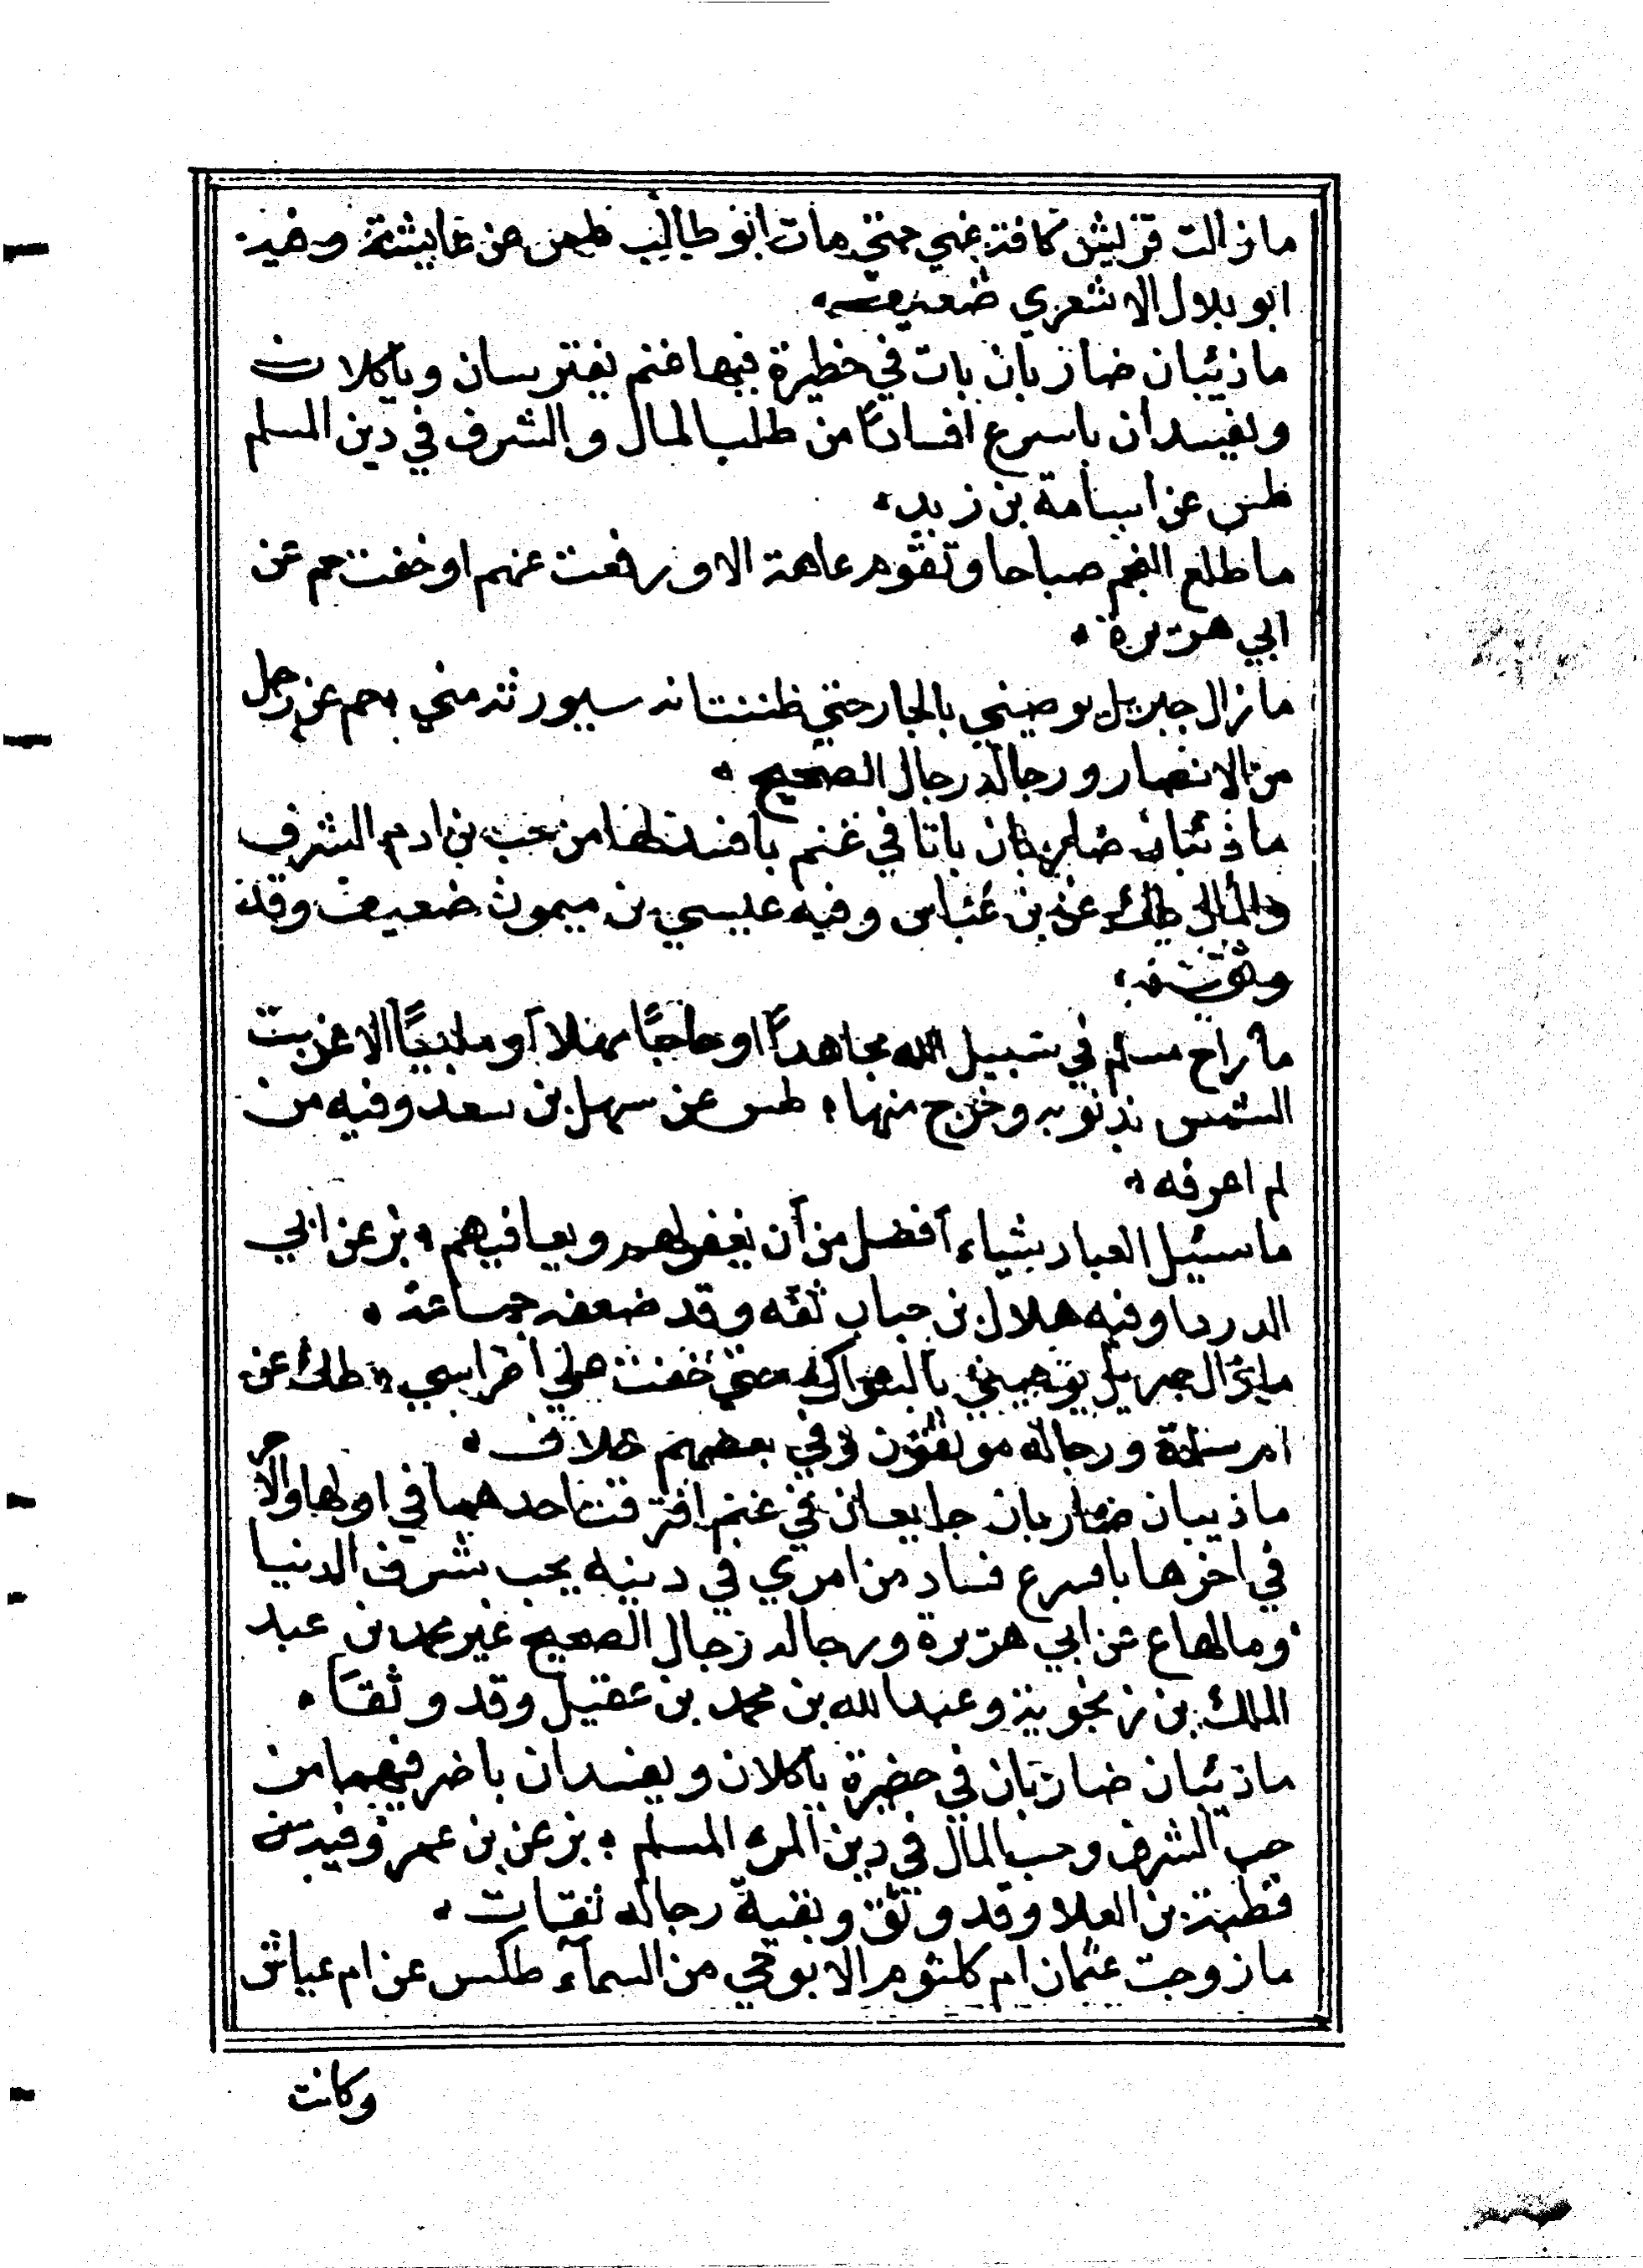 ما زالت قريش كافة عني حتي مات ابو طالب طس عن عايشة وفيه
ابو بلال الاشعري ضعيف
ما ذئبان ضاريان بات في حظيرة فيها غنم يفترسان وياكلان
ويفسدان باسرع افسادًا من طلب المال والشرف في دين المسلم
طس عن اسامة بن زيد
ما طلع النجم صباحا وتقوم عاهة الا ورفعت عنهم او خفت حم عن
ابي هريرة
ما زال جبريل يوصيني بالجار حتي ظننت انه سيورثه مني حم عن رجل
من الانصار ورجاله رجال الصحيح
ما ذئبان ضاريان باتا في غنم بافسد لها من حب بن ادم الشرف
والمال طك عن بن عباس وفيه عيسي بن ميمون ضعيف وقد
وثق
ما راح مسلم في سبيل الله مجاهدًا او حاجًا مهلا او ملبيًا الا غربت
الشمس بذنوبه وخرج منها طس عن سهل بن سعد وفيه من
لم اعرفه
ما سئيل العباد بشياء أفضل من أن يغفر لهم ويعافيهم بز عن ابي
الدردا وفيه هلال بن حباب ثقه وقد ضعفه جماعة
ما زال جبريل يوصيني بالسواك حتي خفت علي أضراسي طك عن
ام سلمة ورجاله موثقون وفي بعضهم خلاف
ما ذيبان ضاريان جايعان في غنم افترقت احدهما في اولها والاخر
في اخرها باسرع فساد من امري في دينه يحب شرف الدنيا
ومالها ع عن ابي هريرة ورجاله رجال الصحيح غير محمد بن عبد
الملك بن زنجوية وعبد الله بن محمد بن عقيل وقد وثقا
ما ذئبان ضاريان في حضيرة يأكلان ويفسدان باضر فيهما من
حب الشرف وحب المال في دين المرء المسلم بز عن بن عمر وفيه
قطبة بن العلا وقد وثق وبقية رجاله ثقات
ما زوجت عثمان ام كلثوم الا بوحي من السمآء طكس عن ام عياش
وكانت